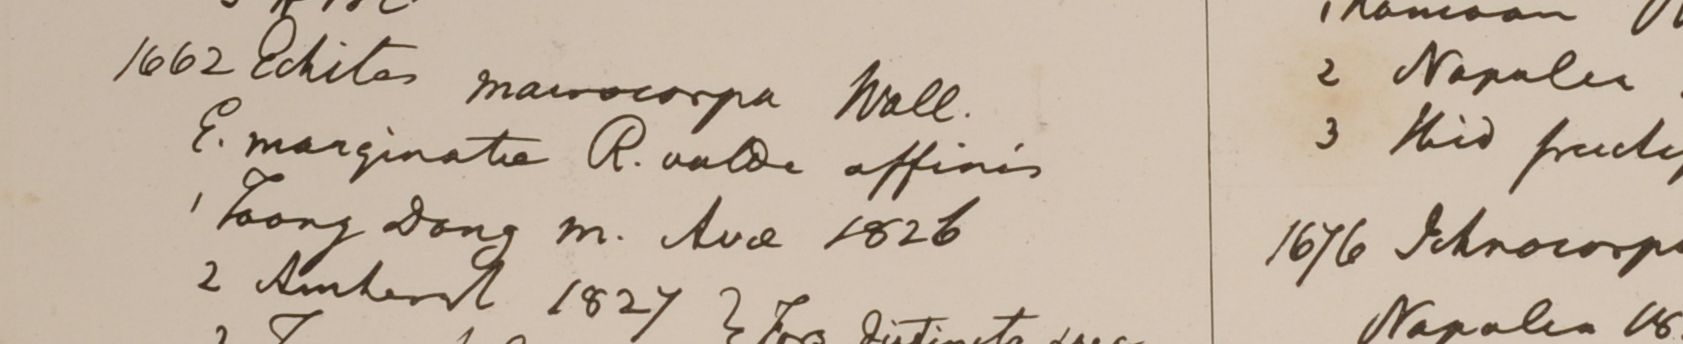 1662 Echites macrocarpa Wall.
E. marginatae R. valde affinis
1 Toong Dong m. Avae 1826
2 Amherst 1827 } Two distinct spec
2 Napalea
3 Ibid
1676 Ichnocarpu
Napalea 18